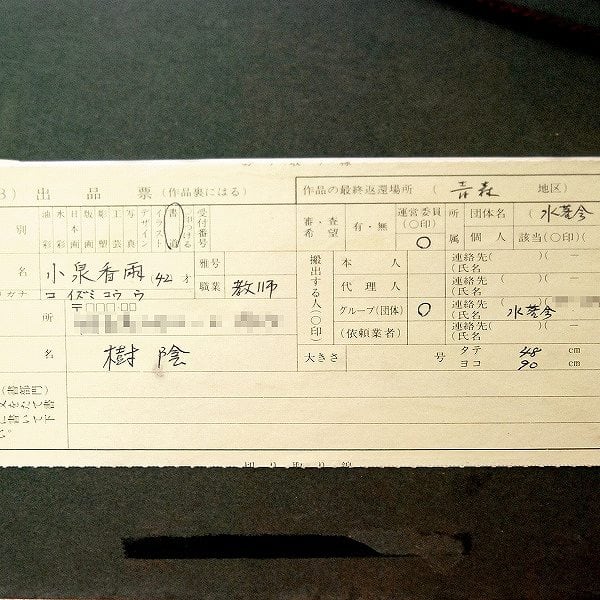 B) 出品票(作品裏にはる)
作品の最終返還場所 ( 青森 地区)
別
油彩 水彩 日本画 版画 彫塑 工芸 写真 デザイン イラスト 書道 ○印つける 受付番号
審・査 希望 有・無 運営委員 (○印) ○
所属 団体名 ( 水茎会
個人 該当(○印)(
名 小泉香雨 (42)才 雅号
カナ コイズミコウウ 職業 教師
所 〒000-00
搬出する人(○印)
本人 連絡先( )( ー
(氏名
代理人 連絡先( )( ー
(氏名
グループ(団体) ○ 連絡先(
(氏名 水茎会
(依頼業者) 連絡先( )( ー
(氏名
名 樹陰
大きさ 号 タテ 48 cm
ヨコ 90 cm
(書部門)
文をたて書
に書いて下
い。
切り取り線